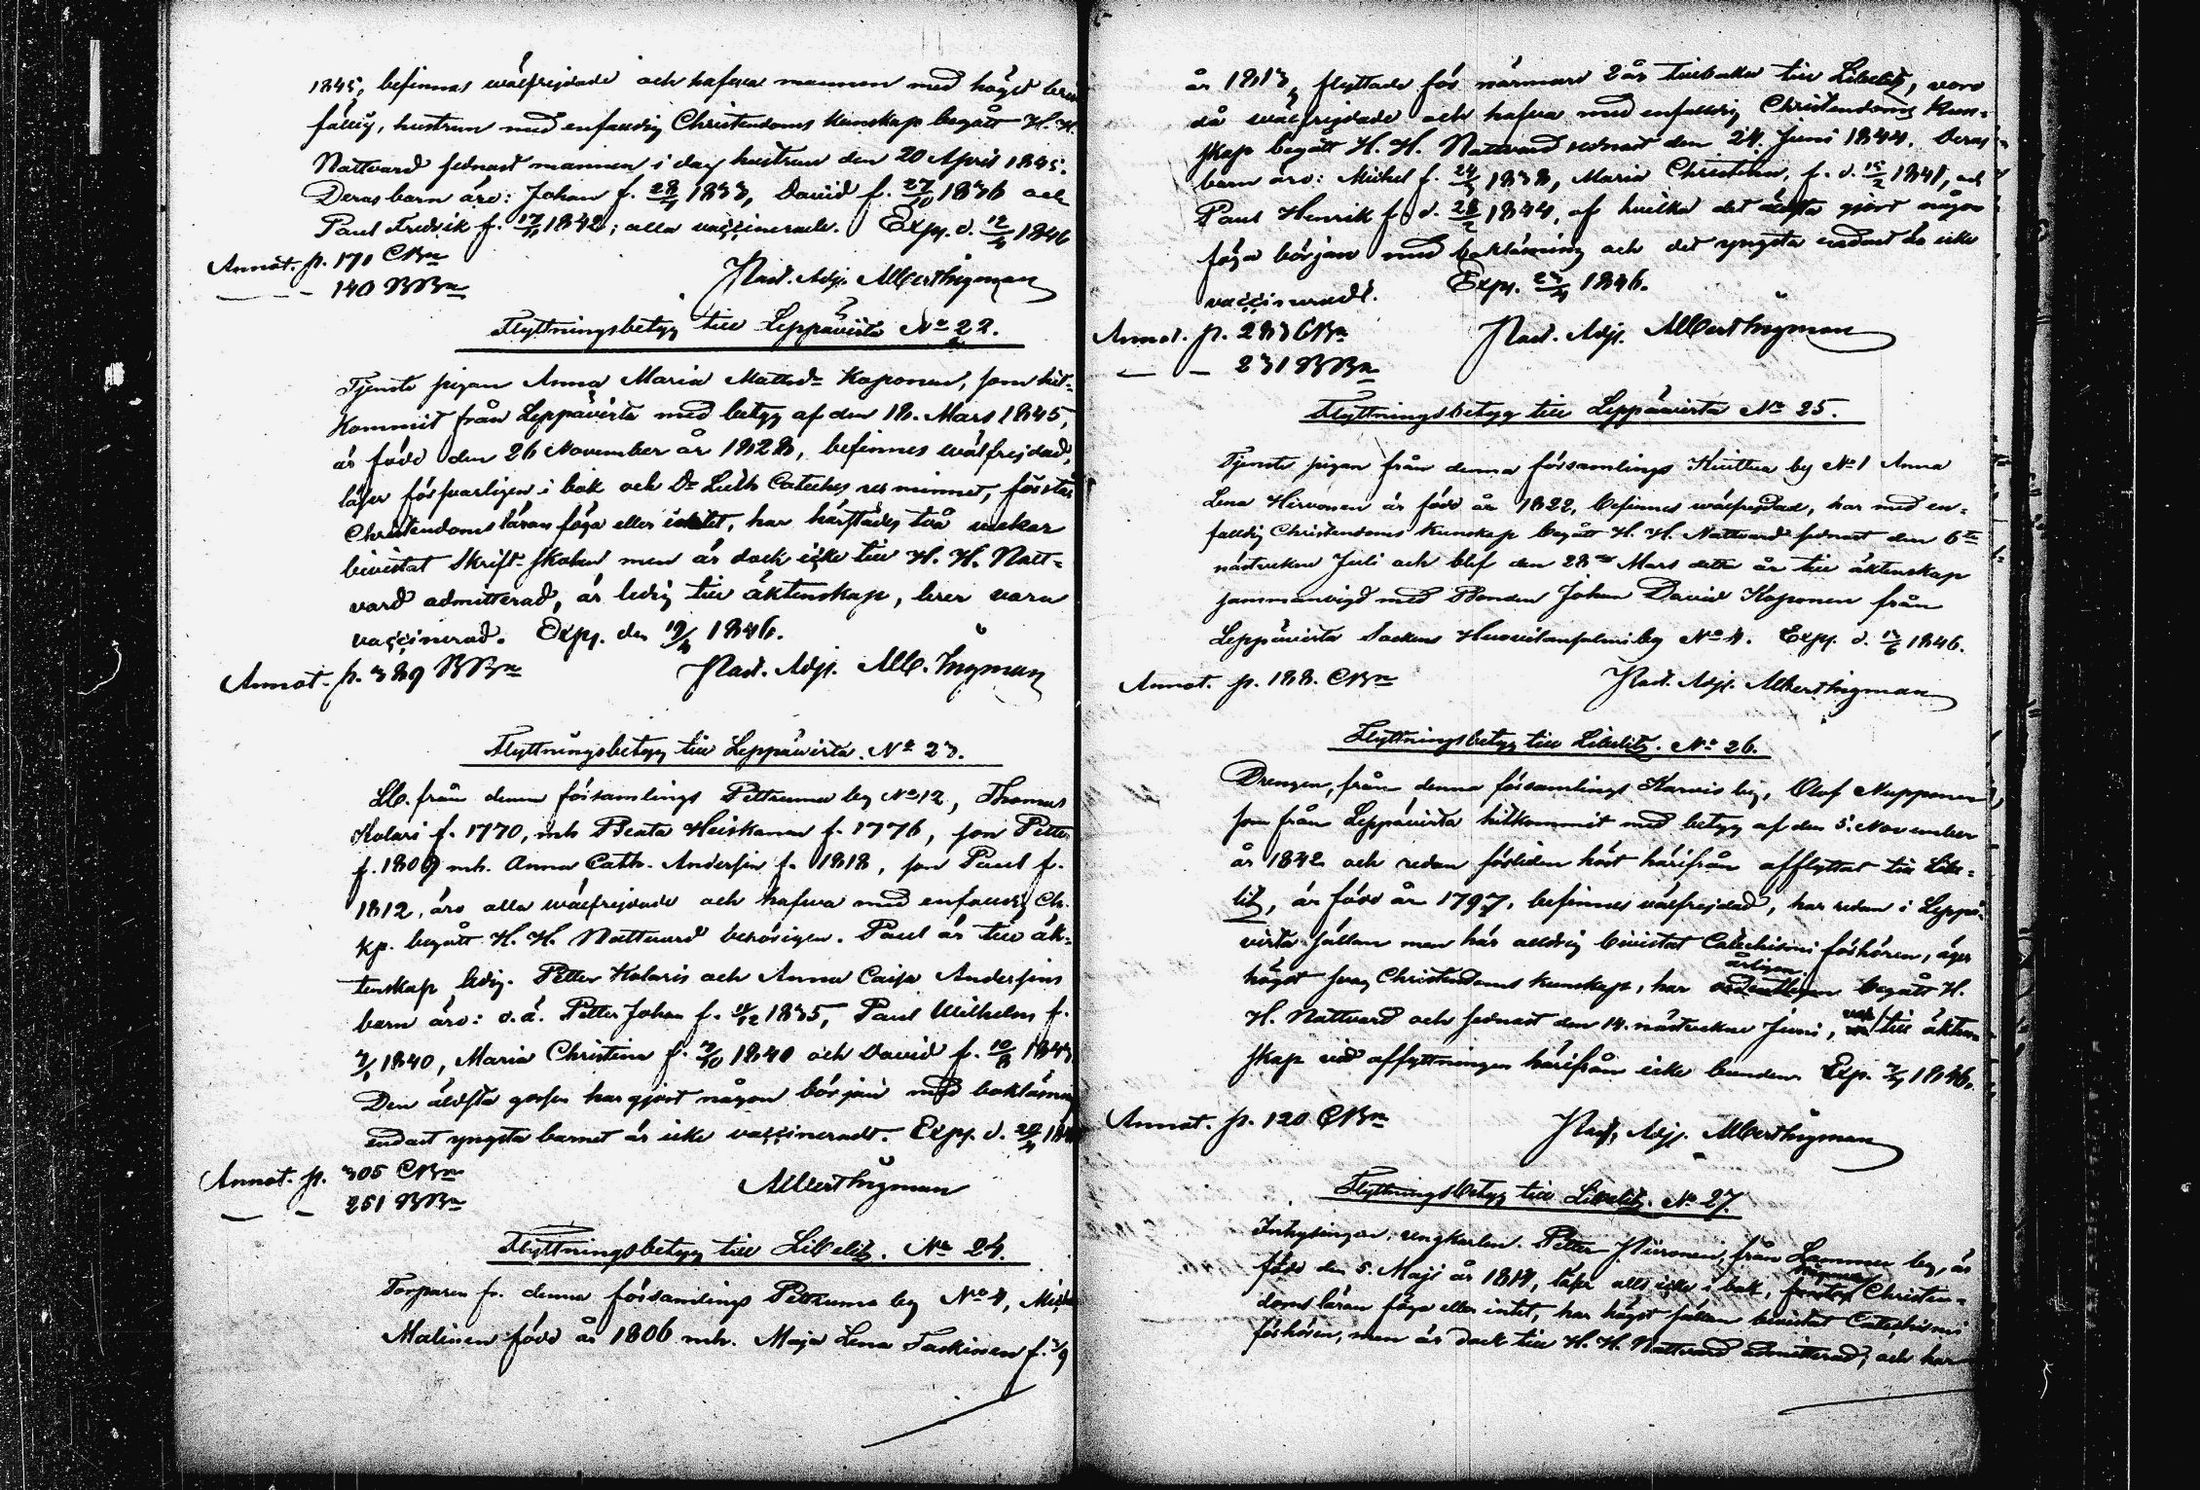 1845, befinnas wälfrejdade och hafwa mannen med högst bris
fällig, hustrun med enfaldig Christendoms kunskap begått H. H.
Nattvard sednast mannen i dag hustrun den 20 April 1845.
Deras barn äro: Johan f. 28/7 1833, David f. 27/10 1836 och
Paul Fredrik f. 17/11 1842; alla vaccinerade. Exp. d. 12/4 1846
Annot. p. 171 CBn
— — 140 BBn
Past. Adj. Albert Ingman
Flyttningsbetyg till Leppävirta No 22.
Tjenste pigan Anna Maria Mattsdr Kaponen, som hit-
kommit från Leppävirta med betyg af den 18. Mars 1845,
är född den 26 November år 1828, befinnes wälfrejdad,
läser försvarligen i bok och Dr Luth. Cateches ur minnet, förstår
Christendomsläran föga eller intet, har härstädes två veckor
bivistat Skrift-skolan men är dock icke till H. H. Natt-
vard admitterad, är ledig till äktenskap, lärer vara
vaccinerad. Exp. den 19/4 1846.
Annot. p. 389 BBn
Past. Adj. Alb. Ingman
Flyttningsbetyg till Leppävirta. No 23.
Lb. från denna församlings Pettruma by No 12, Thomas
Kolari f. 1770, mh Beata Heiskanen f. 1776, son Petter
f. 1809 mh. Anna Cath. Andersin f. 1818, son Paul f.
1812, äro alla wälfrejdade och hafwa med enfaldig Ch.
kp. begått H. H. Nattvard behörigen. Paul är till äk-
tenskap ledig. Petter Kolaris och Anna Caisa Andersins
barn äro: o.ä. Petter Johan f. 1835, Paul Wilhelm f.
1840, Maria Christina f. 1840 och David f. 10/8 1843
Den äldsta gossen har gjort någon början med bokläsning
endast yngsta barnet är icke vaccineradt. Exp. d. 24/4 1846
Annot. p. 305 CBn
— — 251 BBn
Albert Ingman
Flyttningsbetyg till Libelitz. No 24.
Torparen fr. denna församlings Pettruma by No 4, Michel
Malinen född år 1806 mh. Maja Lena Taskinen f.
år 1813, flyttade för närmare 2 år tillbaka till Libelitz, voro
då wälfrejdade och hafwa med enfaldig Christendoms kun-
skap begått H. H. Nattvard sednast den 24. Juni 1844. Deras
barn äro: Michel f. 24/3 1838, Maria Christina, f. d. 15/2 1841, och
Paul Henrik f. d. 28/2 1844, af hvilka det äldsta gjort någon
föga början med bokläsning och det yngsta endast är icke
vaccineradt. Exp. 23/4 1846.
Annot. p. 283 CBn
— — 231 BBn
Past. Adj. Albert Ingman
Flyttningsbetyg till Leppävirta No 25.
Tjenste pigan från denna församlings by No 1 Anna
Lena Hirvonen är född år 1822, befinnes wälfrejdad, har med en-
faldig Christendoms kunskap begått H. H. Nattvard sednast den 6te
nästvikne Juli och blef den 28de Mars detta år till äktenskap
sammanvigd med Bonden Johan David Kaponen från
Leppävirta Socken by No 4. Exp. d. 1846.
Annot. p. 188. CBn
Past. Adj. Albert Ingman
Flyttningsbetyg till Libelitz. No 26.
Drengen, från denna församlings Karvis by, Olof Nupponen
som från Leppävirta hitkommit med betyg af den 5. November
år 1842 och redan förliden höst härifrån afflyttat till Libe-
litz, är född år 1797, befinnes wälfrejdad, har redan i Leppä-
virta sällan men här alldrig bivistat Catechismi förhören, äger
högst svag Christendoms kunskap, har årligen begått H.
H. Nattvard och sednast den 14. nästvikne Juni, var till äkten-
skap vid afflyttningen härifrån icke bunden. Exp. 1846.
Annot. p. 120 CBn
Past. Adj. Albert Ingman
Flyttningsbetyg till Libelitz. No 27.
Inhysingen, ungkarlen Petter från by, är
född den 5. Maji år 1814, läser alls icke i bok, Christen-
domsläran föga eller intet, har högst sällan bivistat Catechismi
förhören, men är dock till H. H. Nattvard admitterad, och har